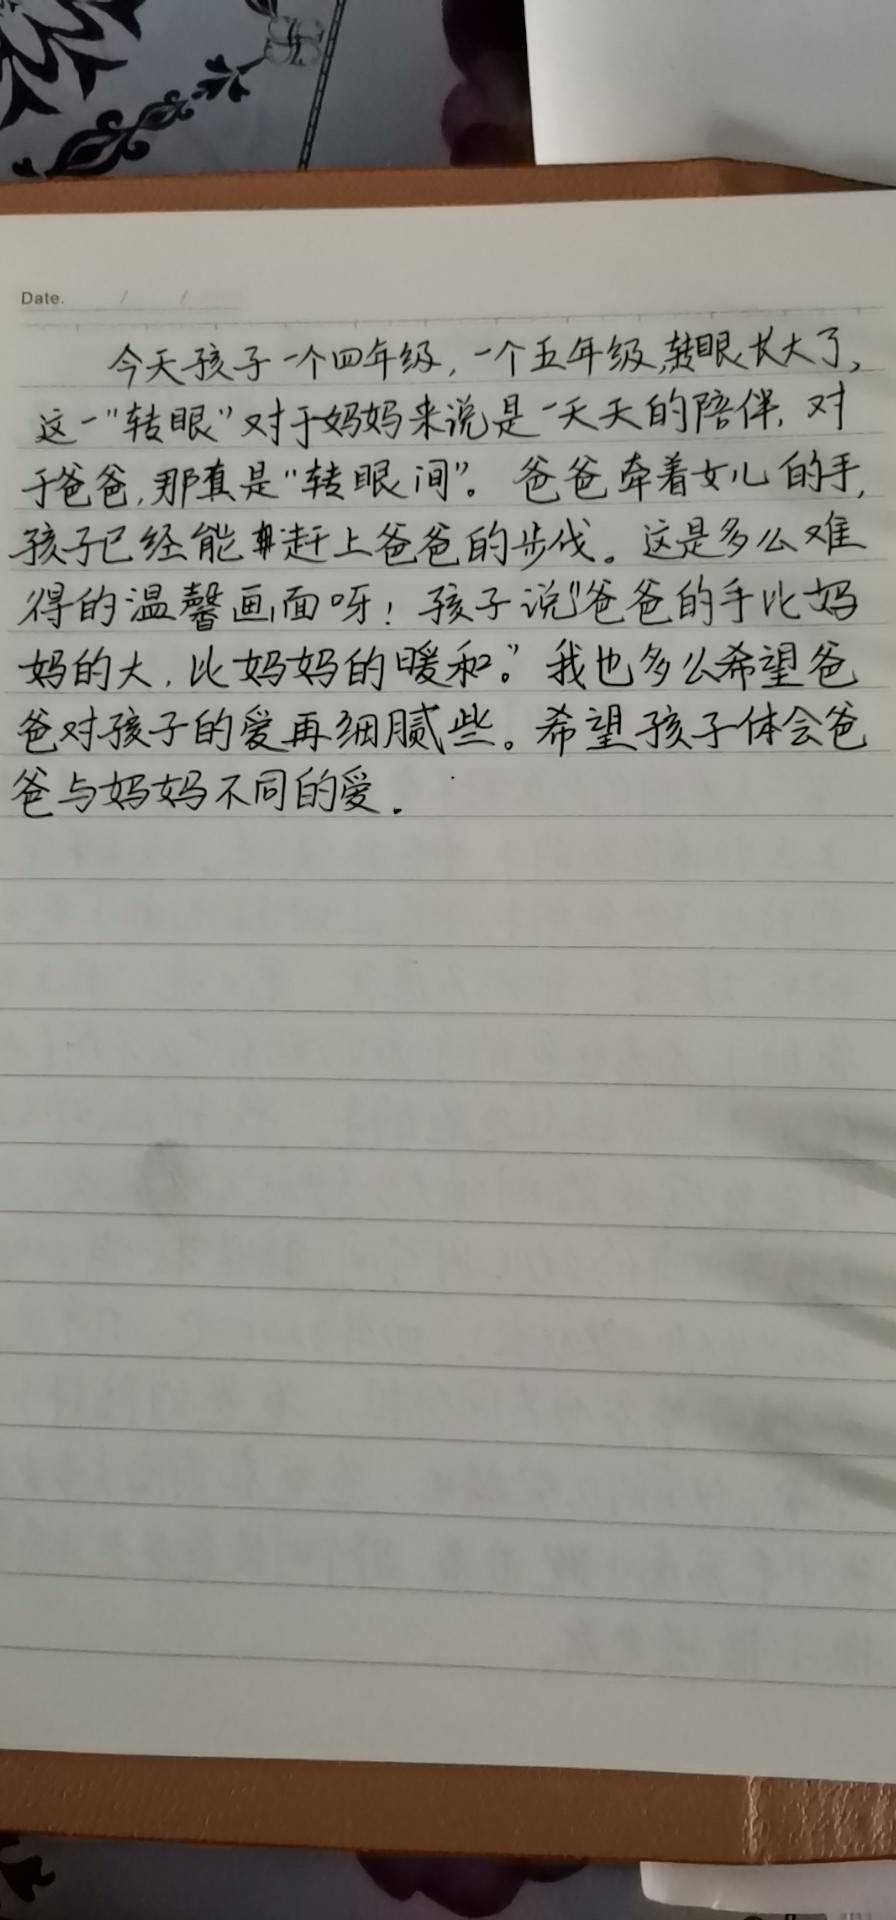 Date. / /
今天孩子一个四年级，一个五年级，转眼长大了，
这一"转眼"对于妈妈来说是一天天的陪伴，对
于爸爸，那真是"转眼间"。爸爸牵着女儿的手，
孩子已经能赶上爸爸的步伐。这是多么难
得的温馨画面呀！孩子说"爸爸的手比妈
妈的大，比妈妈的暖和。"我也多么希望爸
爸对孩子的爱再细腻些。希望孩子体会爸
爸与妈妈不同的爱.